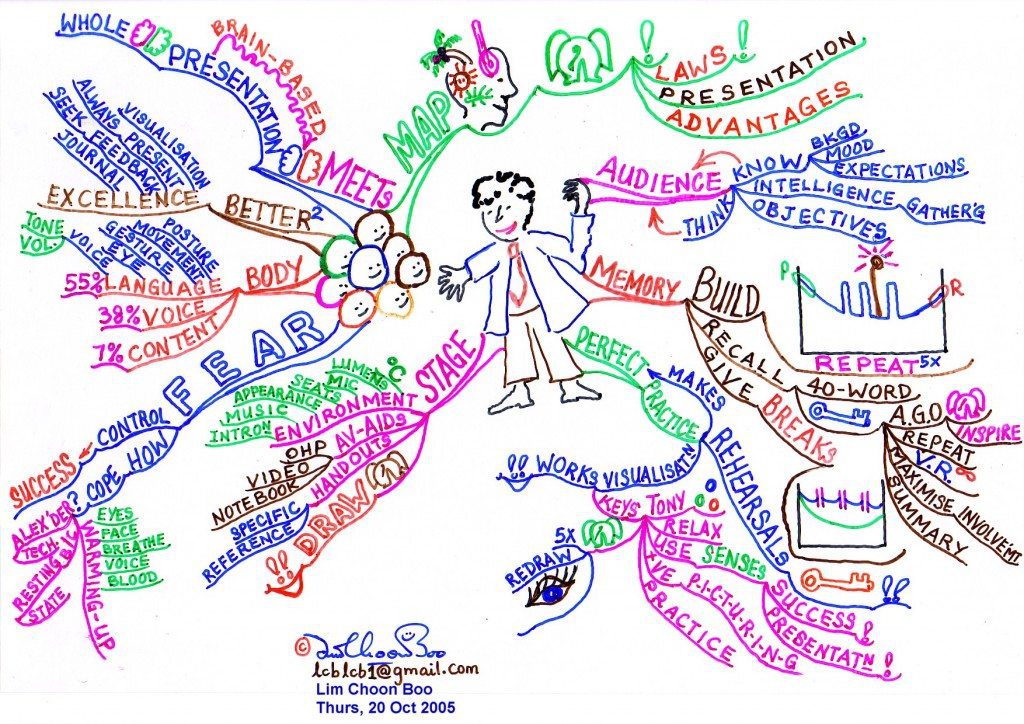 WHOLE
PRESENTATION
BRAIN-BASED
PRESENTATION
MEETS
MAP
LAWS
PRESENTATION
ADVANTAGES
AUDIENCE
KNOW
BKGD
MOOD
EXPECTATIONS
THINK
INTELLIGENCE
GATHER'G
OBJECTIVES
MEMORY
BUILD
P
R
REPEAT 5X
RECALL
GIVE
BREAKS
40-WORD
A.G.O
INSPIRE
REPEAT
V.R.
MAXIMISE INVOLVEM'T
SUMMARY
PERFECT
PRACTICE
MAKES
REHEARSALS
VISUALISATN
WORKS
KEYS TONY
RELAX
USE SENSES
SUCCESS!
PRESENTATN!
+VE P-I-C-T-U-R-I-N-G
PRACTICE
5X
REDRAW
STAGE
ENVIRONMENT
LUMENS
°C
MIC
SEATS
APPEARANCE
MUSIC
INTRON
AV-AIDS
OHP
VIDEO
NOTEBOOK
HANDOUTS
SPECIFIC
REFERENCE
DRAW
!!
FEAR
CONTROL
SUCCESS
HOW
COPE?
ALEX'DER
TECH.
RESTING BIC
STATE
WARMING-UP
EYES
FACE
BREATHE
VOICE
BLOOD
BODY
55% LANGUAGE
POSTURE
MOVEMENT
GESTURE
EYE
VOICE
TONE
VOL.
38% VOICE
7% CONTENT
BETTER²
EXCELLENCE
VISUALISATION
ALWAYS PRESENT
SEEK FEEDBACK
JOURNAL
© Lim Choon Boo
lcblcb1@gmail.com
Lim Choon Boo
Thurs, 20 Oct 2005